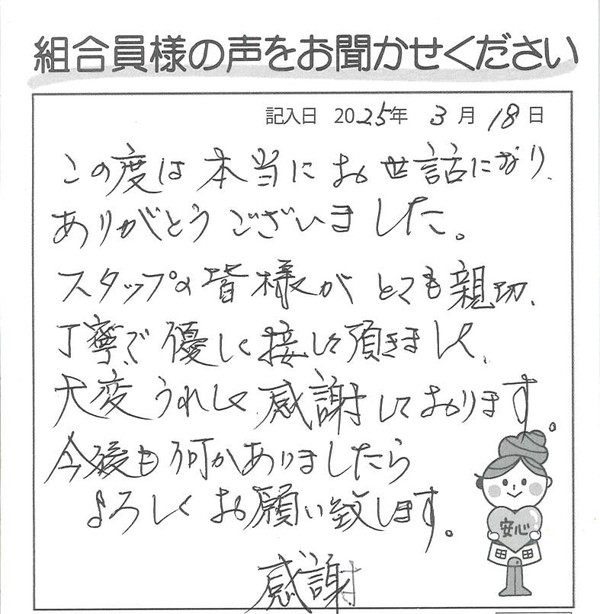 組合員様の声をお聞かせください
記入日 2025年 3月 18日
この度は本当にお世話になり、
ありがとうございました。
スタップの皆様がとても親切、
丁寧で優しく接して頂きまして、
大変うれしく感謝しております。
今後も何かありましたら
よろしくお願い致します。
感謝
安心